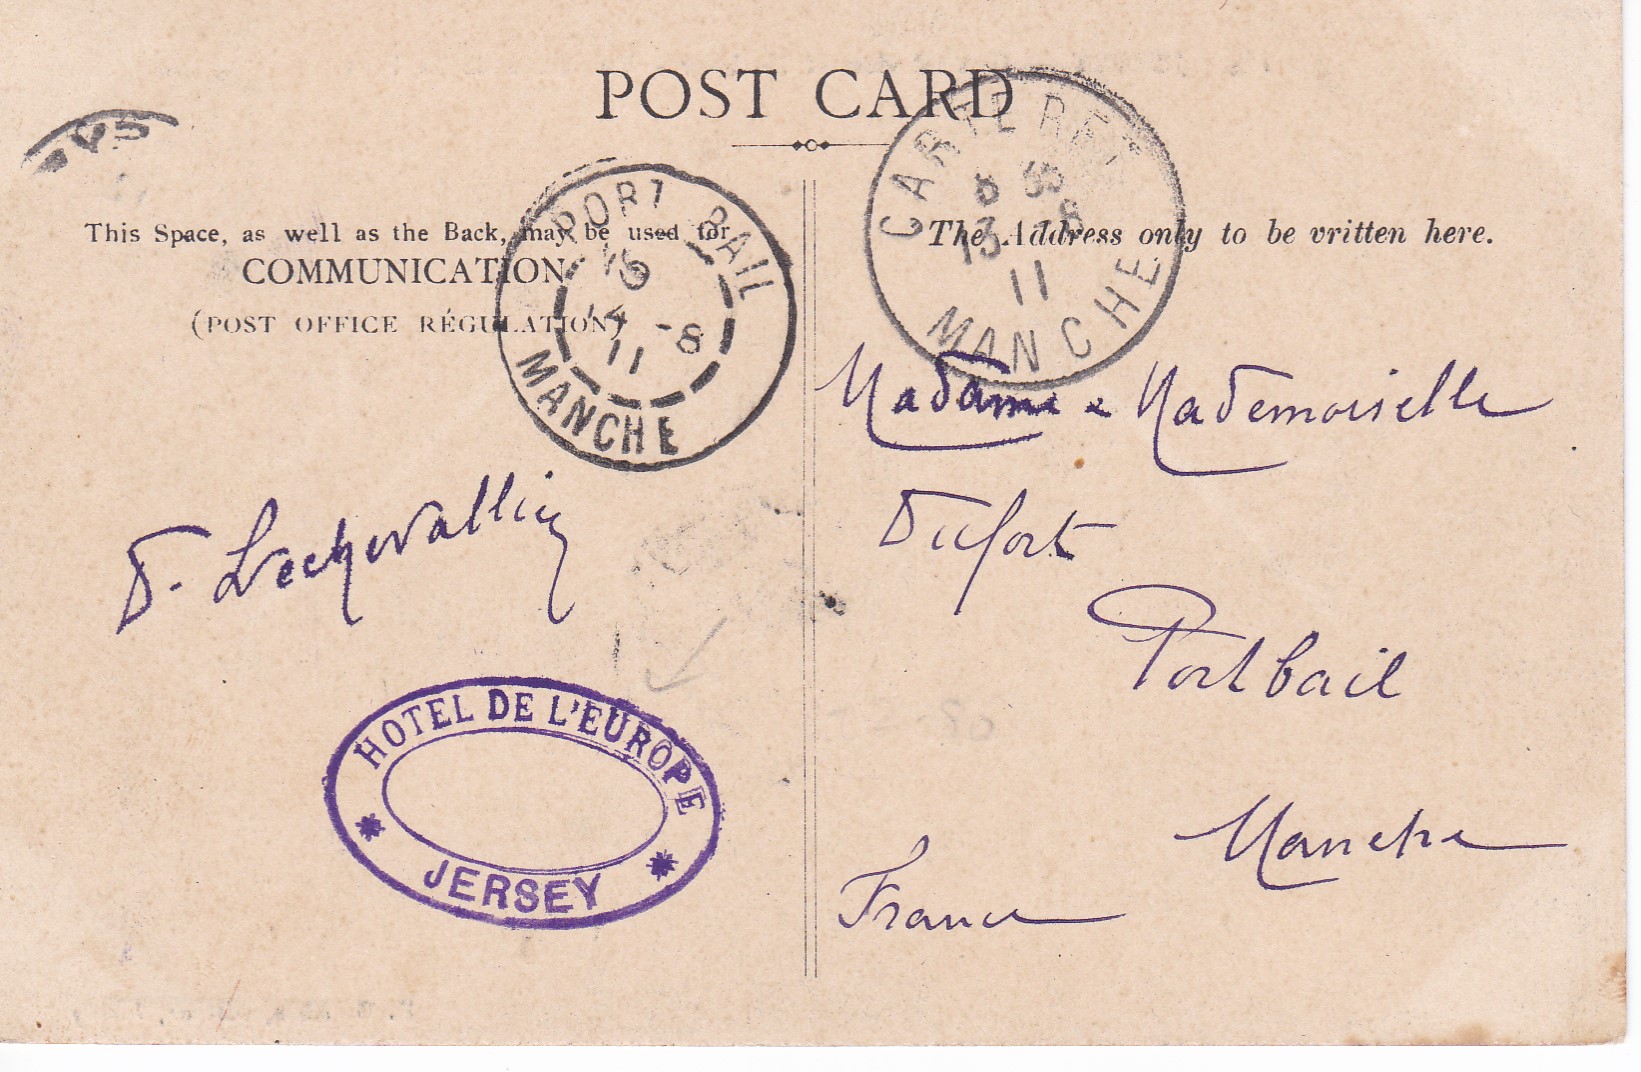 POST CARD
This Space, as well as the Back, may be used for
COMMUNICATION
(POST OFFICE RÉGULATION)
The Address only to be written here.
PORT BAIL
14 -8
11
MANCHE
CARTERET
8 35
13 -8
11
MANCHE
D. Lechevallier
HOTEL DE L'EUROPE
JERSEY
Madame & Mademoiselle
Dufort
Portbail
Manche
France